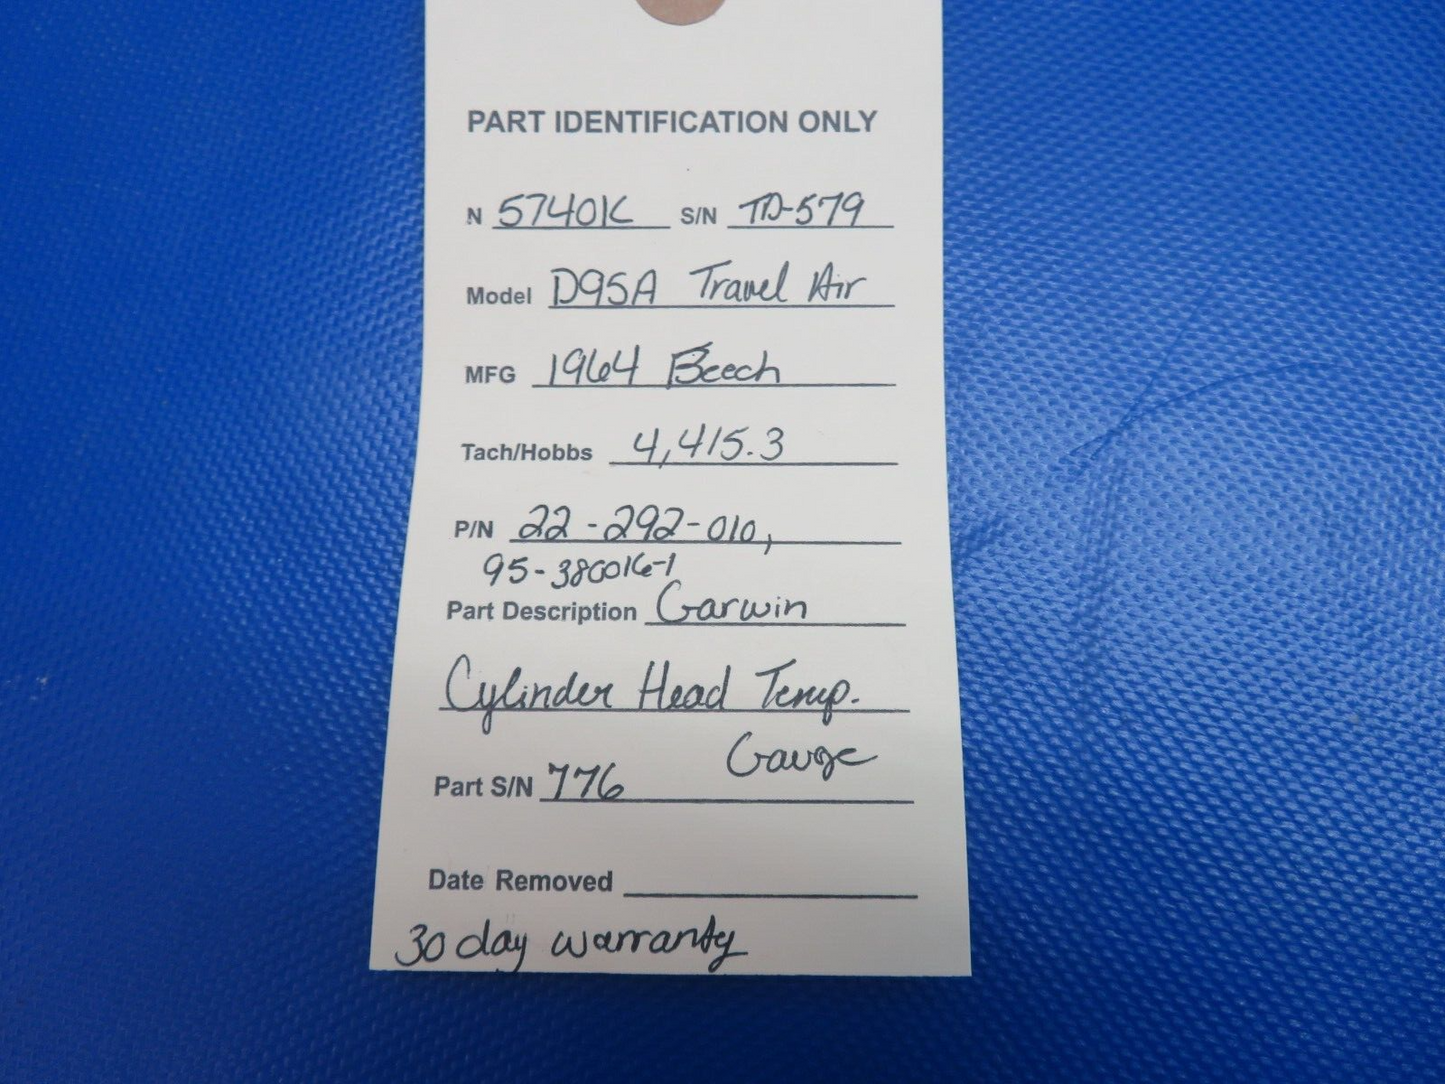 PART IDENTIFICATION ONLY
N 5740K S/N TD-579
Model D95A Travel Air
MFG 1964 Beech
Tach/Hobbs 4,415.3
P/N 22-292-010,
95-380016-1
Part Description Garwin
Cylinder Head Temp.
Gauge
Part S/N 776
Date Removed
30 day warranty